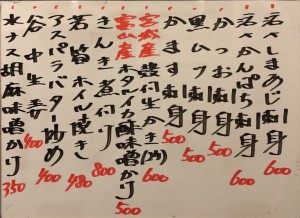 活きしまあじ刺身 600
活きかんぱち刺身 600
かつお刺身 500
黒ムツ刺身 500
かます刺身 500
宮城産 殻付生かき 600
富山産 ホタルイカ酢味噌かけ 500
きんき煮付け 800
ホイル焼き 480
アスパラバター炒め 400
谷中生姜 400
水ナス胡麻味噌かけ 350